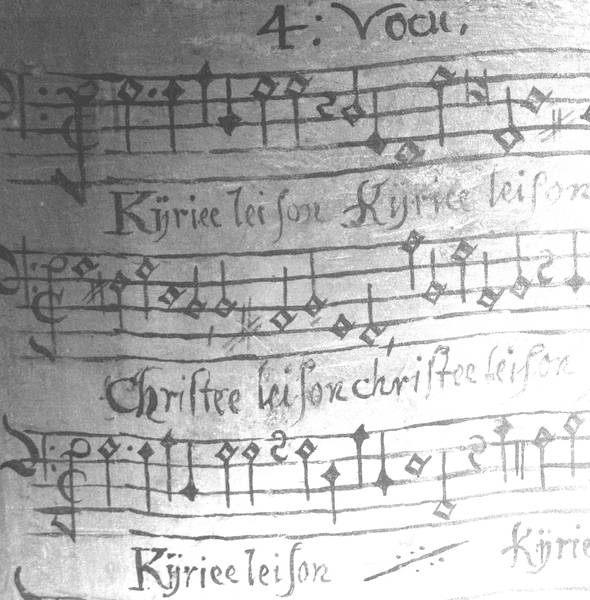 4: Vocu.
Kÿriee leison Kÿriee leison
Christee leison christee leison
Kÿriee leison Kÿrie